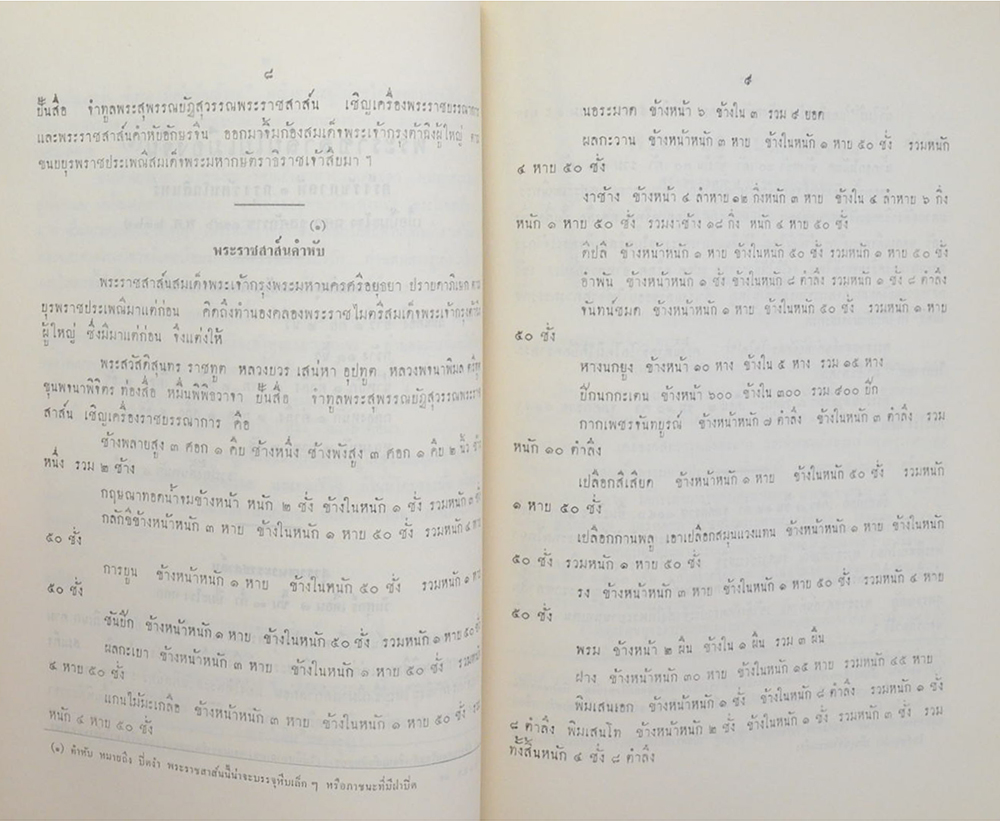 ๘
ยั่นสื่อ จำทูลพระสุพรรณบัฏสุวรรณพระราชสาส์น เชิญเครื่องพระราชบรรณาการ
และพระราชสาส์นคำหับอักษรจีน ออกมาจิ้มก้องสมเด็จพระเจ้ากรุงต้าถึงผู้ใหญ่ ตาม
ขนบยุรพราชประเพณีสมเด็จพระมหากษัตราธิราชเจ้าสืบมา ฯ
(๑)
พระราชสาส์นคำหับ
พระราชสาส์นสมเด็จพระเจ้ากรุงพระมหานครศรีอยุธยา ปรายดาภิเษก ตาม
ยุรพราชประเพณีมาแต่ก่อน คิดถึงทำนองคลองพระราชไมตรีสมเด็จพระเจ้ากรุงต้าถึง
ผู้ใหญ่ ซึ่งมีมาแต่ก่อน จึงแต่งให้
พระสวัสดิสุนทร ราชทูต หลวงบวร เสน่หา อุปทูต หลวงพจนาพิมล ตรีทูต
ขุนพจนาพิจิตร ท่องสื่อ หมื่นพิพิธวาจา ยั่นสื่อ จำทูลพระสุพรรณบัฏสุวรรณพระราช
สาส์น เชิญเครื่องราชบรรณาการ คือ
ช้างพลายสูง ๓ ศอก ๑ คืบ ช้างหนึ่ง ช้างพังสูง ๓ ศอก ๑ คืบ ๒ นิ้ว ช้าง
หนึ่ง รวม ๒ ช้าง
กฤษณาทอดน้ำจมข้างหน้า หนัก ๒ ชั่ง ข้างในหนัก ๑ ชั่ง รวมหนัก ๓ ชั่ง
กลักขี่ข้างหน้าหนัก ๓ หาบ ข้างในหนัก ๑ หาบ ๕๐ ชั่ง รวมหนัก ๔ หาบ
๕๐ ชั่ง
การยูน ข้างหน้าหนัก ๑ หาบ ข้างในหนัก ๕๐ ชั่ง รวมหนัก ๑ หาบ
๕๐ ชั่ง
ชันยิ๊ก ข้างหน้าหนัก ๑ หาบ ข้างในหนัก ๕๐ ชั่ง รวมหนัก ๑ หาบ ๕๐ ชั่ง
ผลกะเบา ข้างหน้าหนัก ๓ หาบ ข้างในหนัก ๑ หาบ ๕๐ ชั่ง รวมหนัก
๔ หาบ ๕๐ ชั่ง
แกนไม้มะเกลือ ข้างหน้าหนัก ๓ หาบ ข้างในหนัก ๑ หาบ ๕๐ ชั่ง รวม
หนัก ๔ หาบ ๕๐ ชั่ง
(๑) คำหับ หมายถึง ปิดงำ พระราชสาส์นนี้น่าจะบรรจุหีบเล็ก ๆ หรือภาชนะที่มีฝาปิด
๙
นอระมาด ข้างหน้า ๖ ข้างใน ๓ รวม ๙ ยอด
ผลกะวาน ข้างหน้าหนัก ๓ หาบ ข้างในหนัก ๑ หาบ ๕๐ ชั่ง รวมหนัก
๔ หาบ ๕๐ ชั่ง
งาช้าง ข้างหน้า ๔ ลำหาบ ๑๒ กิ่งหนัก ๓ หาบ ข้างใน ๔ ลำหาบ ๖ กิ่ง
หนัก ๑ หาบ ๕๐ ชั่ง รวมงาช้าง ๑๘ กิ่ง หนัก ๔ หาบ ๕๐ ชั่ง
ดีปลี ข้างหน้าหนัก ๑ หาบ ข้างในหนัก ๕๐ ชั่ง รวมหนัก ๑ หาบ ๕๐ ชั่ง
อำพัน ข้างหน้าหนัก ๑ ชั่ง ข้างในหนัก ๘ ตำลึง รวมหนัก ๑ ชั่ง ๘ ตำลึง
จันทน์ชมด ข้างหน้าหนัก ๑ หาบ ข้างในหนัก ๕๐ ชั่ง รวมหนัก ๑ หาบ
๕๐ ชั่ง
หางนกยูง ข้างหน้า ๑๐ หาง ข้างใน ๕ หาง รวม ๑๕ หาง
ปีกนกกะเตน ข้างหน้า ๖๐๐ ข้างใน ๓๐๐ รวม ๙๐๐ ปีก
กากเพชรจันทบูรณ์ ข้างหน้าหนัก ๗ ตำลึง ข้างในหนัก ๓ ตำลึง รวม
หนัก ๑๐ ตำลึง
เปลือกสีเสียด ข้างหน้าหนัก ๑ หาบ ข้างในหนัก ๕๐ ชั่ง รวมหนัก
๑ หาบ ๕๐ ชั่ง
เปลือกกานพลู เอาเปลือกสมุนแวงแทน ข้างหน้าหนัก ๑ หาบ ข้างในหนัก
๕๐ ชั่ง รวมหนัก ๑ หาบ ๕๐ ชั่ง
รง ข้างหน้าหนัก ๓ หาบ ข้างในหนัก ๑ หาบ ๕๐ ชั่ง รวมหนัก ๔ หาบ
๕๐ ชั่ง
พรม ข้างหน้า ๒ ผืน ข้างใน ๑ ผืน รวม ๓ ผืน
ฝาง ข้างหน้าหนัก ๓๐ หาบ ข้างในหนัก ๑๕ หาบ รวมหนัก ๔๕ หาบ
พิมเสนเอก ข้างหน้าหนัก ๑ ชั่ง ข้างในหนัก ๘ ตำลึง รวมหนัก ๑ ชั่ง
๘ ตำลึง พิมเสนโท ข้างหน้าหนัก ๒ ชั่ง ข้างในหนัก ๑ ชั่ง รวมหนัก ๓ ชั่ง รวม
ทั้งสิ้นหนัก ๔ ชั่ง ๘ ตำลึง